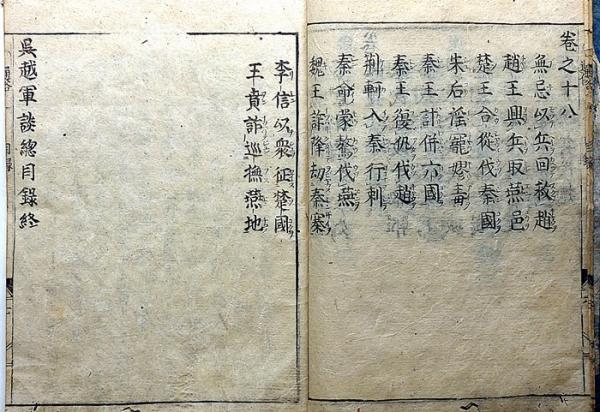 卷之十八
無忌以兵回救趙
趙王興兵取燕邑
楚王合從伐秦國
朱后淫寵嫪毒
秦王計併六國
秦王復仇伐趙
荆軻入秦行刺
秦命蒙驁伐燕
魏王詐降劫秦寨
李信以衆征楚國
王賁詐巡撫燕地
吳越軍談總目錄終